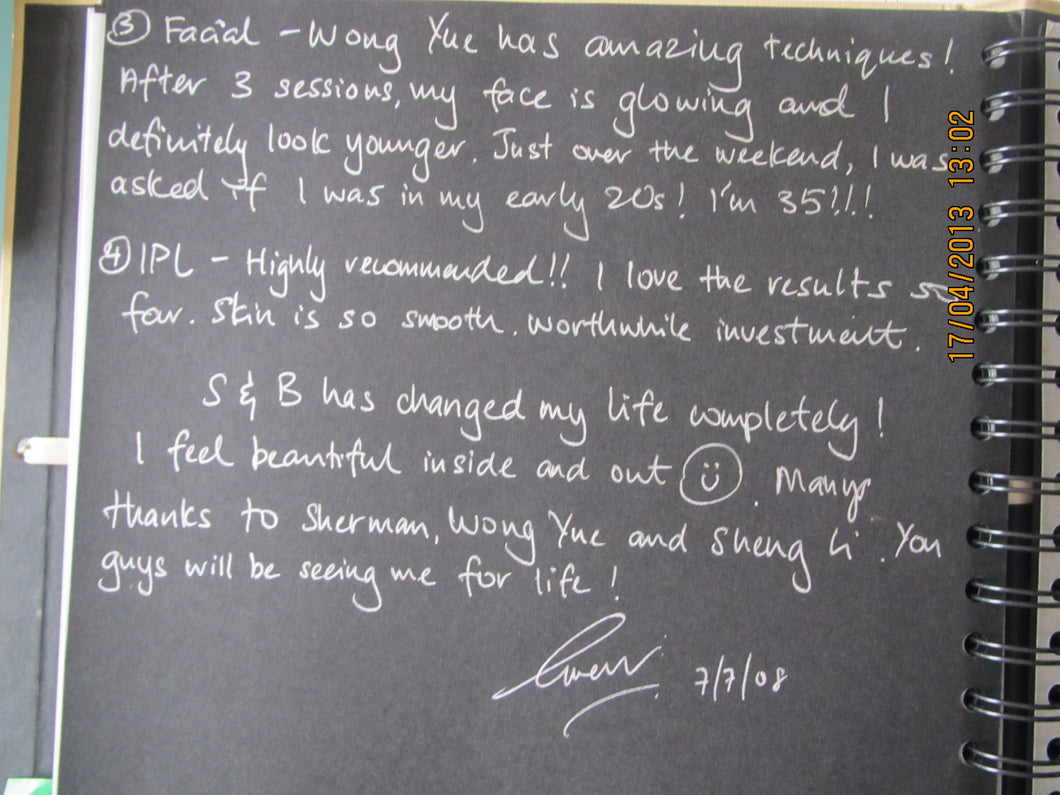 ③ Facial - Wong Yue has amazing techniques!
After 3 sessions, my face is glowing and I
definitely look younger. Just over the weekend, I was
asked if I was in my early 20s! I'm 35!!!
④ IPL - Highly recommended!! I love the results so
far. Skin is so smooth. Worthwhile investment.
S & B has changed my life completely!
I feel beautiful inside and out ☺. Many
thanks to Sherman, Wong Yue and Sheng Li. You
guys will be seeing me for life!
7/7/08
17/04/2013 13:02